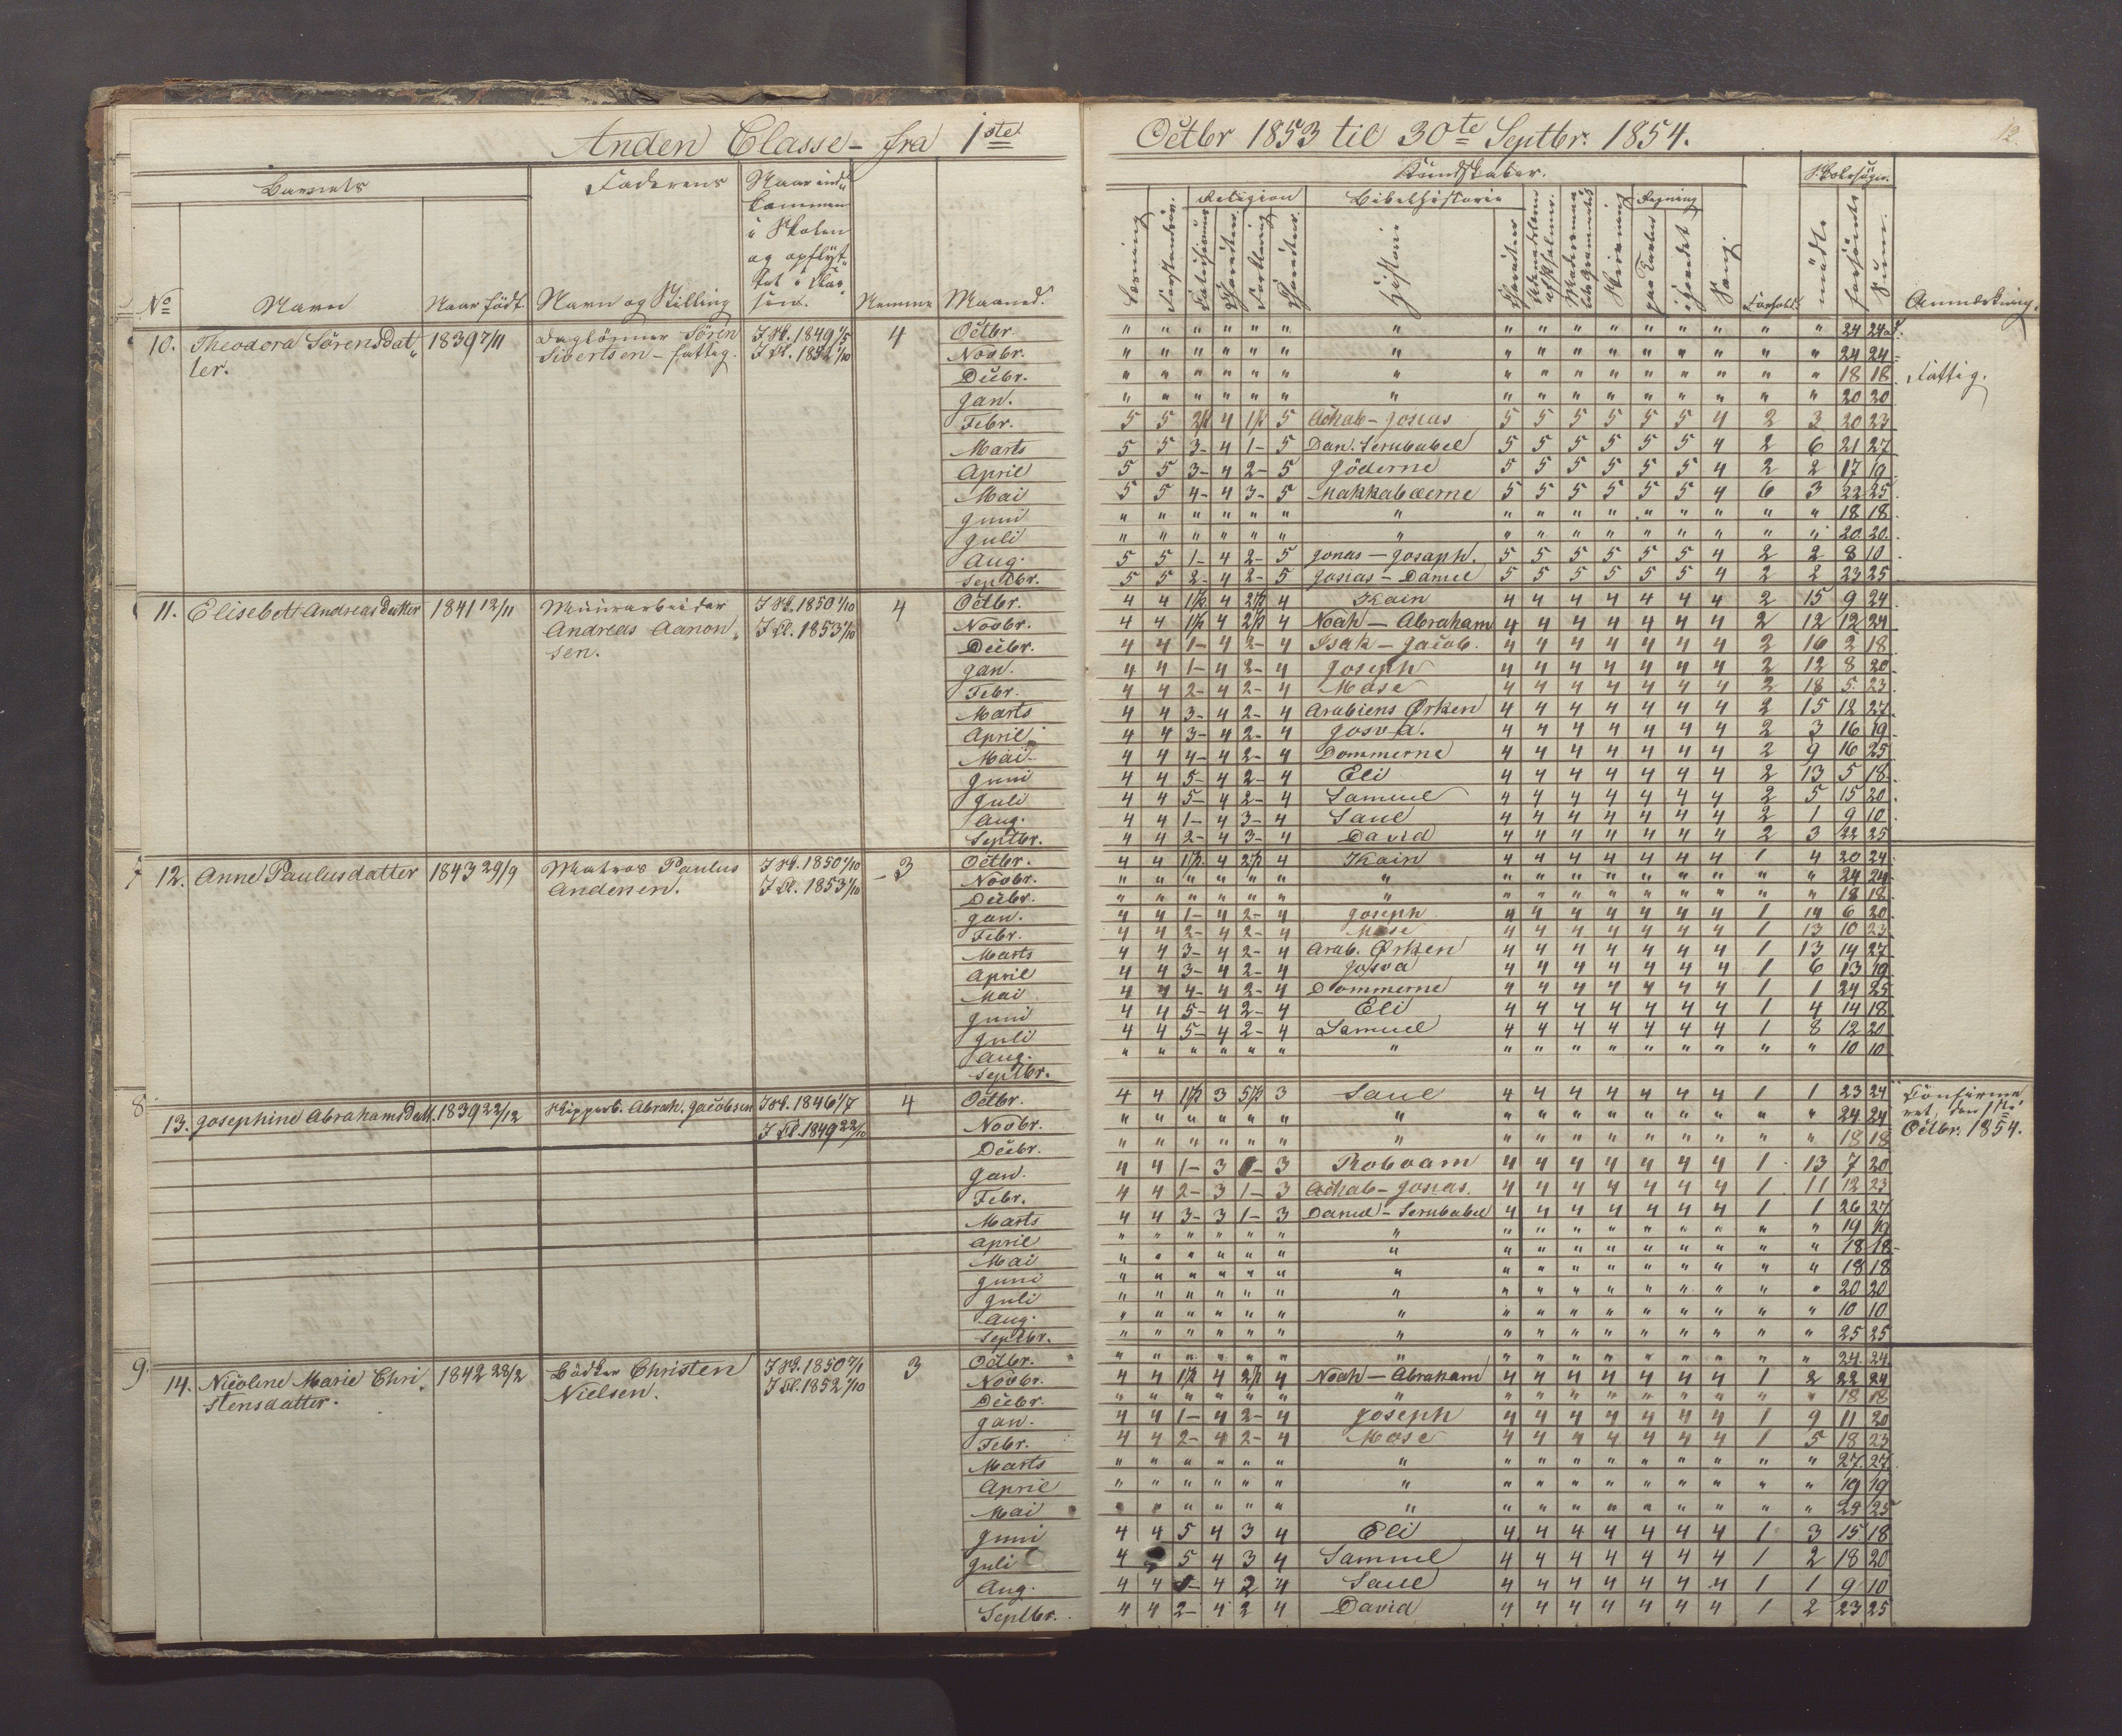 Anden Classe - fra 1ste Octbr 1853 til 30te Septbr. 1854.
12.
Barnets Faderens Kundskaber. Skolesøgn.
Religion Bibelhistorie Regning
No Navn Naar født. Navn og Stilling Naar ind-kommen i Skolen og opflyt-tet i Clas-sen. Nemme Maaned. Læsning Forstand Historie Skrivning Sang. Forhold. mødte forsømte Sum. Anmærkning.
10. Theodora Sørensdat- 1839 7/11 Daglønner Søren I Sk. 1849 1/5 4 Octbr " " " " " " " " " " " " " " " " 24 24
ter. Sivertsen - fattig. I Cl. 1852 1/10 Novbr. " " " " " " " " " " " " " " " " 24 24
Decbr. " " " " " " " " " " " " " " " " 18 18 Fattig.
Jan. " " " " " " " " " " " " " " " " 20 20
Febr. 5 5 2½ 4 1½ 5 Achab - Josias 5 5 5 5 5 5 4 2 3 20 23
Marts 5 5 3- 4 1- 5 Dan. Serubabel 5 5 5 5 5 5 4 2 6 21 27
April 5 5 3- 4 2- 5 Jøderne 5 5 5 5 5 5 4 2 2 17 19
Mai 5 5 4- 4 3- 5 Makkabæerne 5 5 5 5 5 5 4 6 3 22 25
Juni " " " " " " " " " " " " " " " " 18 18
Juli " " " " " " " " " " " " " " " " 20 20
Aug. 5 5 1- 4 2- 5 Jonas - Josaph. 5 5 5 5 5 5 4 2 2 8 10
Septbr. 5 5 2- 4 2- 5 Josias - Daniel 5 5 5 5 5 5 4 2 2 23 25
11. Elisebett Andreas Datter 1841 12/11 Muurarbeider I Sk. 1850 1/10 4 Octbr. 4 4 1½ 4 2½ 4 Kain 4 4 4 4 4 4 4 2 15 9 24
Andreas Aanon- I Cl. 1853 1/10 Novbr. 4 4 1½ 4 2½ 4 Noah - Abraham 4 4 4 4 4 4 4 2 12 12 24
sen. Decbr. 4 4 1- 4 2- 4 Isak - Jacob. 4 4 4 4 4 4 4 2 16 2 18
Jan. 4 4 1- 4 2- 4 Joseph 4 4 4 4 4 4 4 2 12 8 20
Febr. 4 4 2- 4 2- 4 Mose 4 4 4 4 4 4 4 2 18 5 23
Marts 4 4 3- 4 2- 4 Arabiens Ørken 4 4 4 4 4 4 4 2 15 12 27
April 4 4 3- 4 2- 4 Josva. 4 4 4 4 4 4 4 2 3 16 19
Mai 4 4 4- 4 2- 4 Dommerne 4 4 4 4 4 4 4 2 9 16 25
Juni 4 4 5- 4 2- 4 Eli 4 4 4 4 4 4 4 2 13 5 18
Juli 4 4 5- 4 2- 4 Samuel 4 4 4 4 4 4 4 2 5 15 20
Aug. 4 4 1- 4 3- 4 Saul 4 4 4 4 4 4 4 2 1 9 10
Septbr. 4 4 2- 4 3- 4 David 4 4 4 4 4 4 4 2 3 22 25
7 12. Anne Paulusdatter 1843 29/9 Matros Paulus I Sk. 1850 1/10 - 3 Octbr. 4 4 1½ 4 2½ 4 Kain 4 4 4 4 4 4 4 1 4 20 24
Andersen. I Cl. 1853 1/10 Novbr. " " " " " " " " " " " " " " " " 24 24
Decbr. " " " " " " " " " " " " " " " " 18 18
Jan. 4 4 1- 4 2- 4 Joseph 4 4 4 4 4 4 4 1 14 6 20
Febr. 4 4 2- 4 2- 4 Mose 4 4 4 4 4 4 4 1 13 10 23
Marts 4 4 3- 4 2- 4 Arab. Ørken 4 4 4 4 4 4 4 1 13 14 27
April 4 4 3- 4 2- 4 Josva 4 4 4 4 4 4 4 1 6 13 19
Mai 4 4 4- 4 2- 4 Dommerne 4 4 4 4 4 4 4 1 1 24 25
Juni 4 4 5- 4 2- 4 Eli 4 4 4 4 4 4 4 1 4 14 18
Juli 4 4 5- 4 2- 4 Samuel 4 4 4 4 4 4 4 1 8 12 20
Aug. " " " " " " " " " " " " " " " " 10 10
Septbr.
8 13. Josephine Abrahams Datt. 1839 22/12 Skipperb. Abrah. Jacobsen I Sk. 1846 1/7 4 Octbr. 4 4 1½ 3 5½ 3 Saul 4 4 4 4 4 4 4 1 1 23 24 Confirme-
I Cl. 1849 22/10 Novbr. " " " " " " " " " " " " " " " " 24 24 ret, den 1ste
Decbr. " " " " " " " " " " " " " " " " 18 18 Octbr. 1854.
Jan. 4 4 1- 3 1- 3 Roboam 4 4 4 4 4 4 4 1 13 7 20
Febr. 4 4 2- 3 1- 3 Achab - Josias. 4 4 4 4 4 4 4 1 11 12 23
Marts 4 4 3- 3 1- 3 Daniel - Serubabel 4 4 4 4 4 4 4 1 1 26 27
April " " " " " " " " " " " " " " " " 19 19
Mai " " " " " " " " " " " " " " " " 18 18
Juni " " " " " " " " " " " " " " " " 18 18
Juli " " " " " " " " " " " " " " " " 20 20
Aug. " " " " " " " " " " " " " " " " 10 10
Septbr. " " " " " " " " " " " " " " " " 25 25
9. 14. Nicoline Marie Chri- 1842 28/2 Bødker Christen I Sk. 1850 7/1 3 Octbr. " " " " " " " " " " " " " " " " 24 24
stensdatter. Nielsen. I Cl. 1852 1/10 Novbr. 4 4 1½ 4 2½ 4 Noah - Abraham 4 4 4 4 4 4 4 1 2 22 24
Decbr. " " " " " " " " " " " " " " " " 18 18
Jan. 4 4 1- 4 2- 4 Joseph 4 4 4 4 4 4 4 1 9 11 20
Febr. 4 4 2- 4 2- 4 Mose 4 4 4 4 4 4 4 1 5 18 23
Marts " " " " " " " " " " " " " " " " 27 27
April " " " " " " " " " " " " " " " " 19 19
Mai " " " " " " " " " " " " " " " " 25 25
Juni 4 4 5 4 3 4 Eli 4 4 4 4 4 4 4 1 3 15 18
Juli 4 5 4 3 4 Samuel 4 4 4 4 4 4 4 1 2 18 20
Aug. 4 4 1- 4 2 4 Saul 4 4 4 4 4 4 4 1 1 9 10
Septbr. 4 4 2- 4 2 4 David 4 4 4 4 4 4 4 1 2 23 25